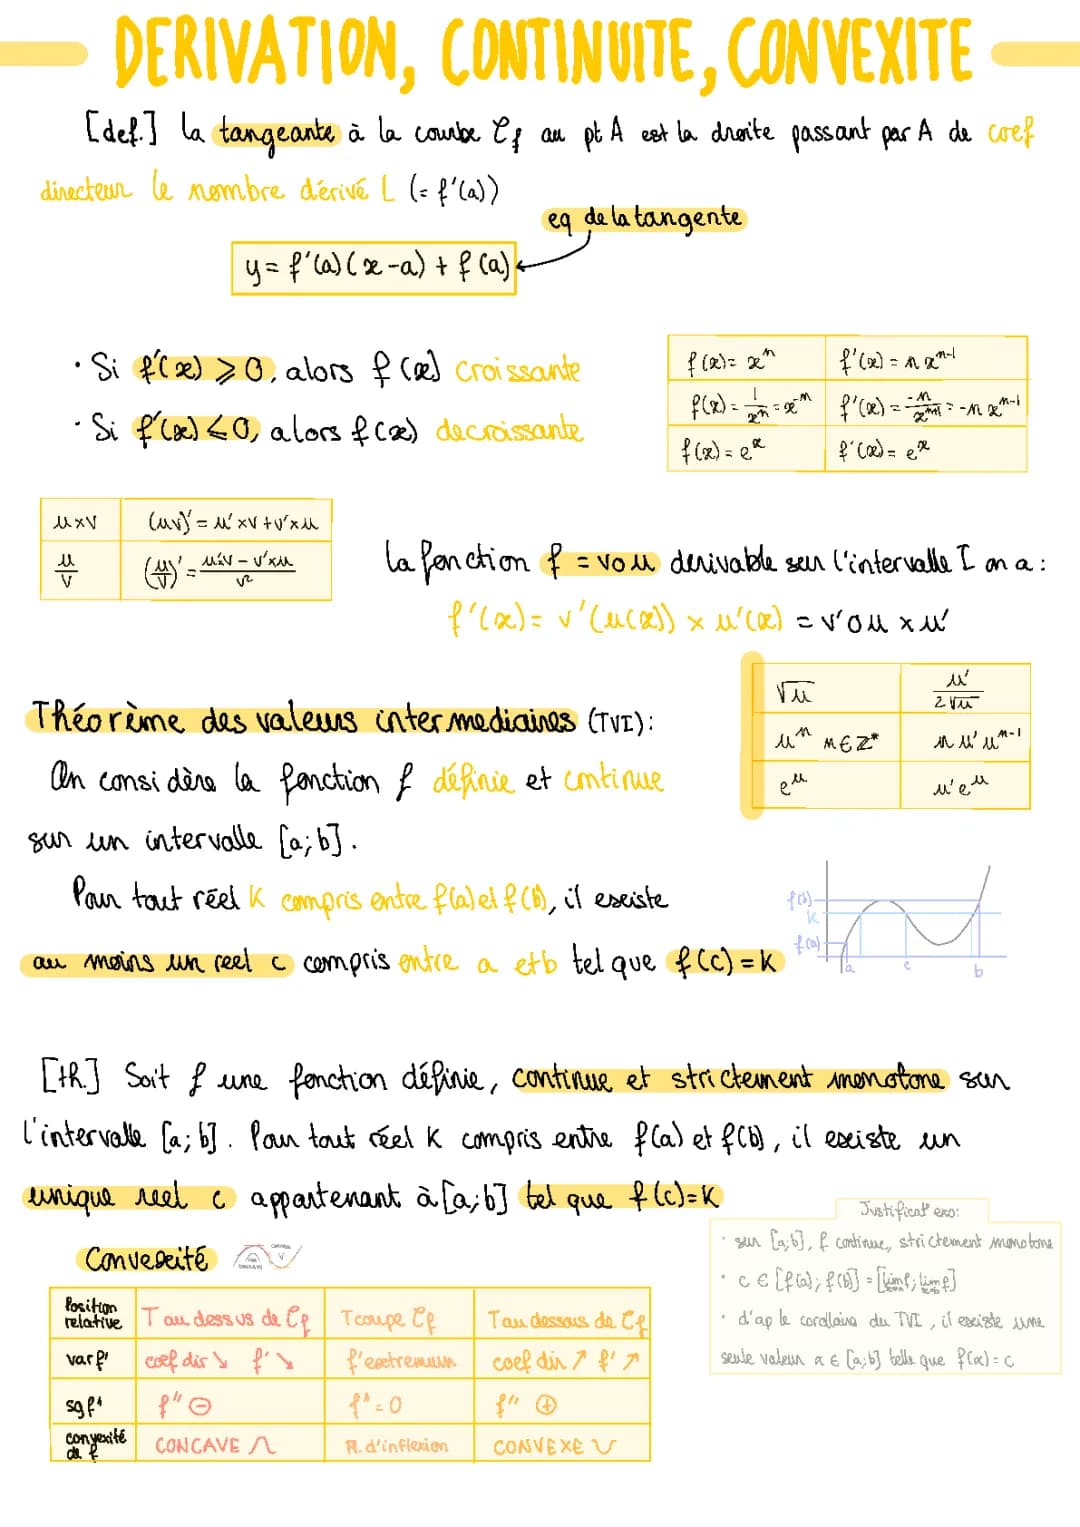 DERIVATION, CONTINUITE, CONVEXITE
[def.] la tangeante à la courbe Cf au pt A est la droite passant par A de coef
directeur le nombre dérivé L (= f'(a))
eq de la tangente
y = f'(a)(x-a) + f(a)
· Si f'(x) ⩾ 0, alors f(x) croissante
· Si f'(x) ⩽ 0, alors f(x) decroissante
f(x) = xⁿ f'(x) = n xⁿ⁻¹
f(x) = 1/xⁿ = x⁻ⁿ f'(x) = -n/xⁿ⁺¹ = -n xⁿ⁻¹
f(x) = eˣ f'(x) = eˣ
u×v (uv)' = u'×v + v'×u
u/v (u/v)' = u'v - v'×u / v²
la fonction f = v∘u derivable sur l'intervalle I on a :
f'(x) = v'(u(x)) × u'(x) = v'∘u × u'
√u u'/2√u
uⁿ n∈Z* n u' uⁿ⁻¹
eᵘ u'eᵘ
Théorème des valeurs intermediaires (TVI) :
On considère la fonction f définie et continue
sur un intervalle [a;b].
Pour tout réel K compris entre f(a) et f(b), il existe
au moins un reel c compris entre a et b tel que f(c) = K
f(b)
K
f(a)
a c b
[th.] Soit f une fonction définie, continue et strictement monotone sur
l'intervalle [a;b]. Pour tout réel K compris entre f(a) et f(b), il existe un
unique reel c appartenant à [a;b] tel que f(c)=K
Justificat° exo:
· sur [a;b], f continue, strictement monotone
· c ∈ [f(a); f(b)] = [lim f; lim f]
· d'ap le corollaire du TVI, il existe une
seule valeur α ∈ [a;b] telle que f(α) = c
Convexité
Position relative T au dessus de Cf T coupe Cf T au dessous de Cf
var f' coef dir ↘ f' ↘ f' extremum coef dir ↗ f' ↗
sg f" f" ⊖ f" = 0 f" ⊕
convexité de f CONCAVE Pt. d'inflexion CONVEXE